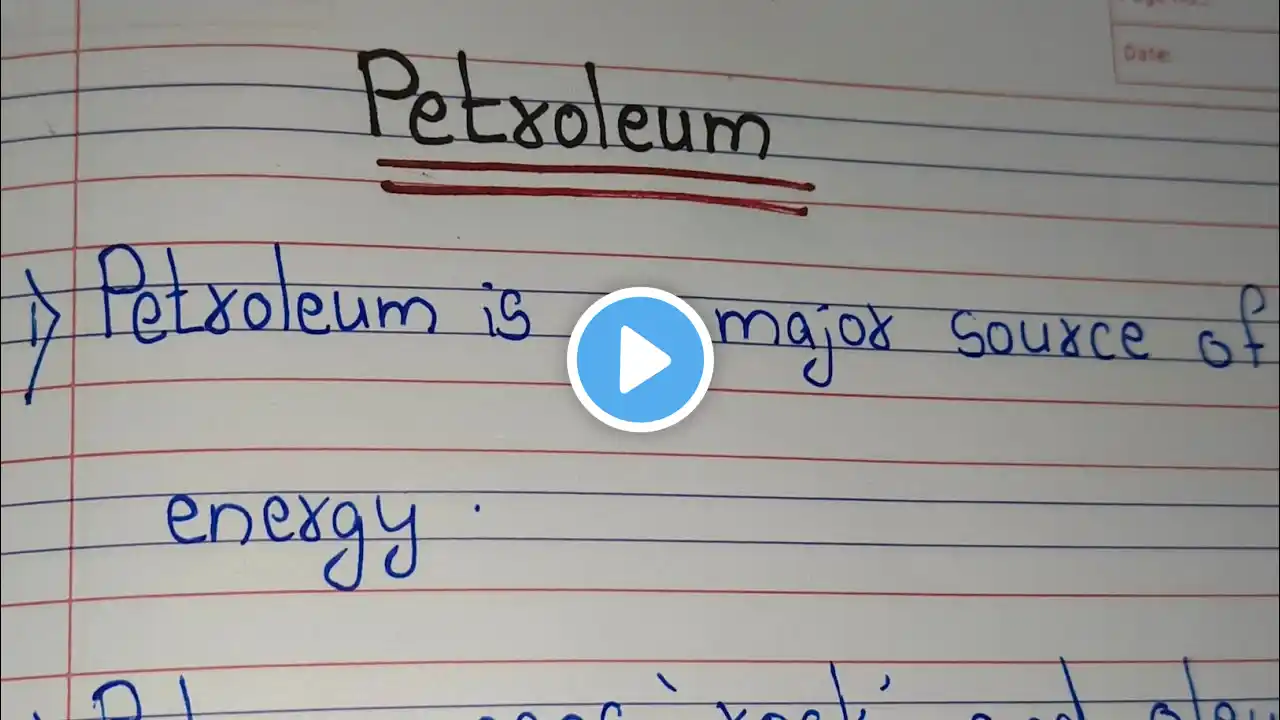 Date:
Petroleum
1) Petroleum is major source of
energy.